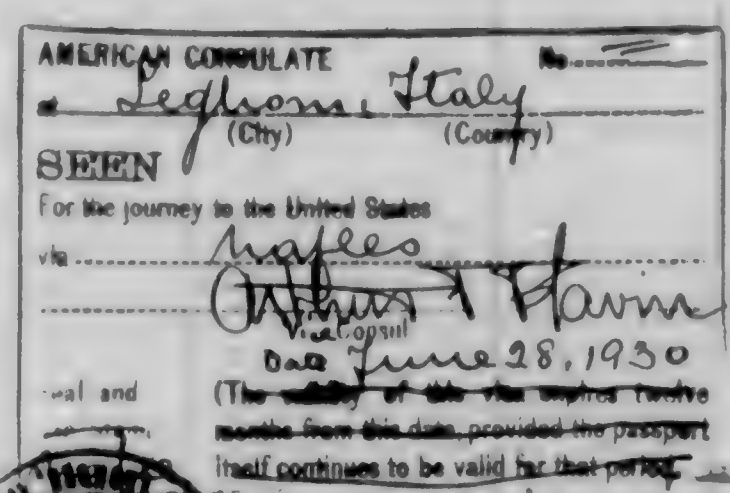 AMERICAN CONSULATE No
at Leghorn, Italy
(City) (Country)
SEEN
For the journey to the United States
via Naples
Arthur T Flavin
Vice Consul
Date June 28, 1930
(The validity of this visa expires twelve
and months from this date, provided the passport
itself continues to be valid for that period